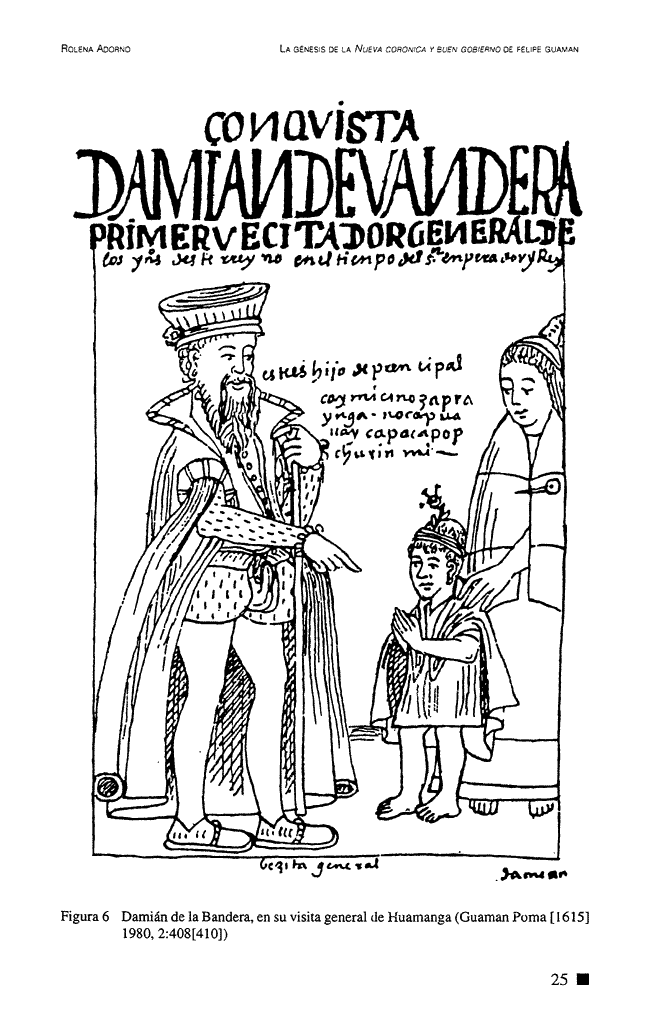 ROLENA ADORNO
LA GÉNESIS DE LA NUEVA CORONICA Y BUEN GOBIERNO DE FELIPE GUAMAN
CONQVISTA
DAMIANDEVANDERA
PRIMERVECITADORGENERALDE
los yns deste rreyno en el tienpo del sr enperador y Rey
estes hijo de prencipal
caymi cinozapra
ynga - nocap ua
uay capacapop
churin mi
bezita general
damian
Figura 6 Damián de la Bandera, en su visita general de Huamanga (Guaman Poma [1615]
1980, 2:408[410])
25